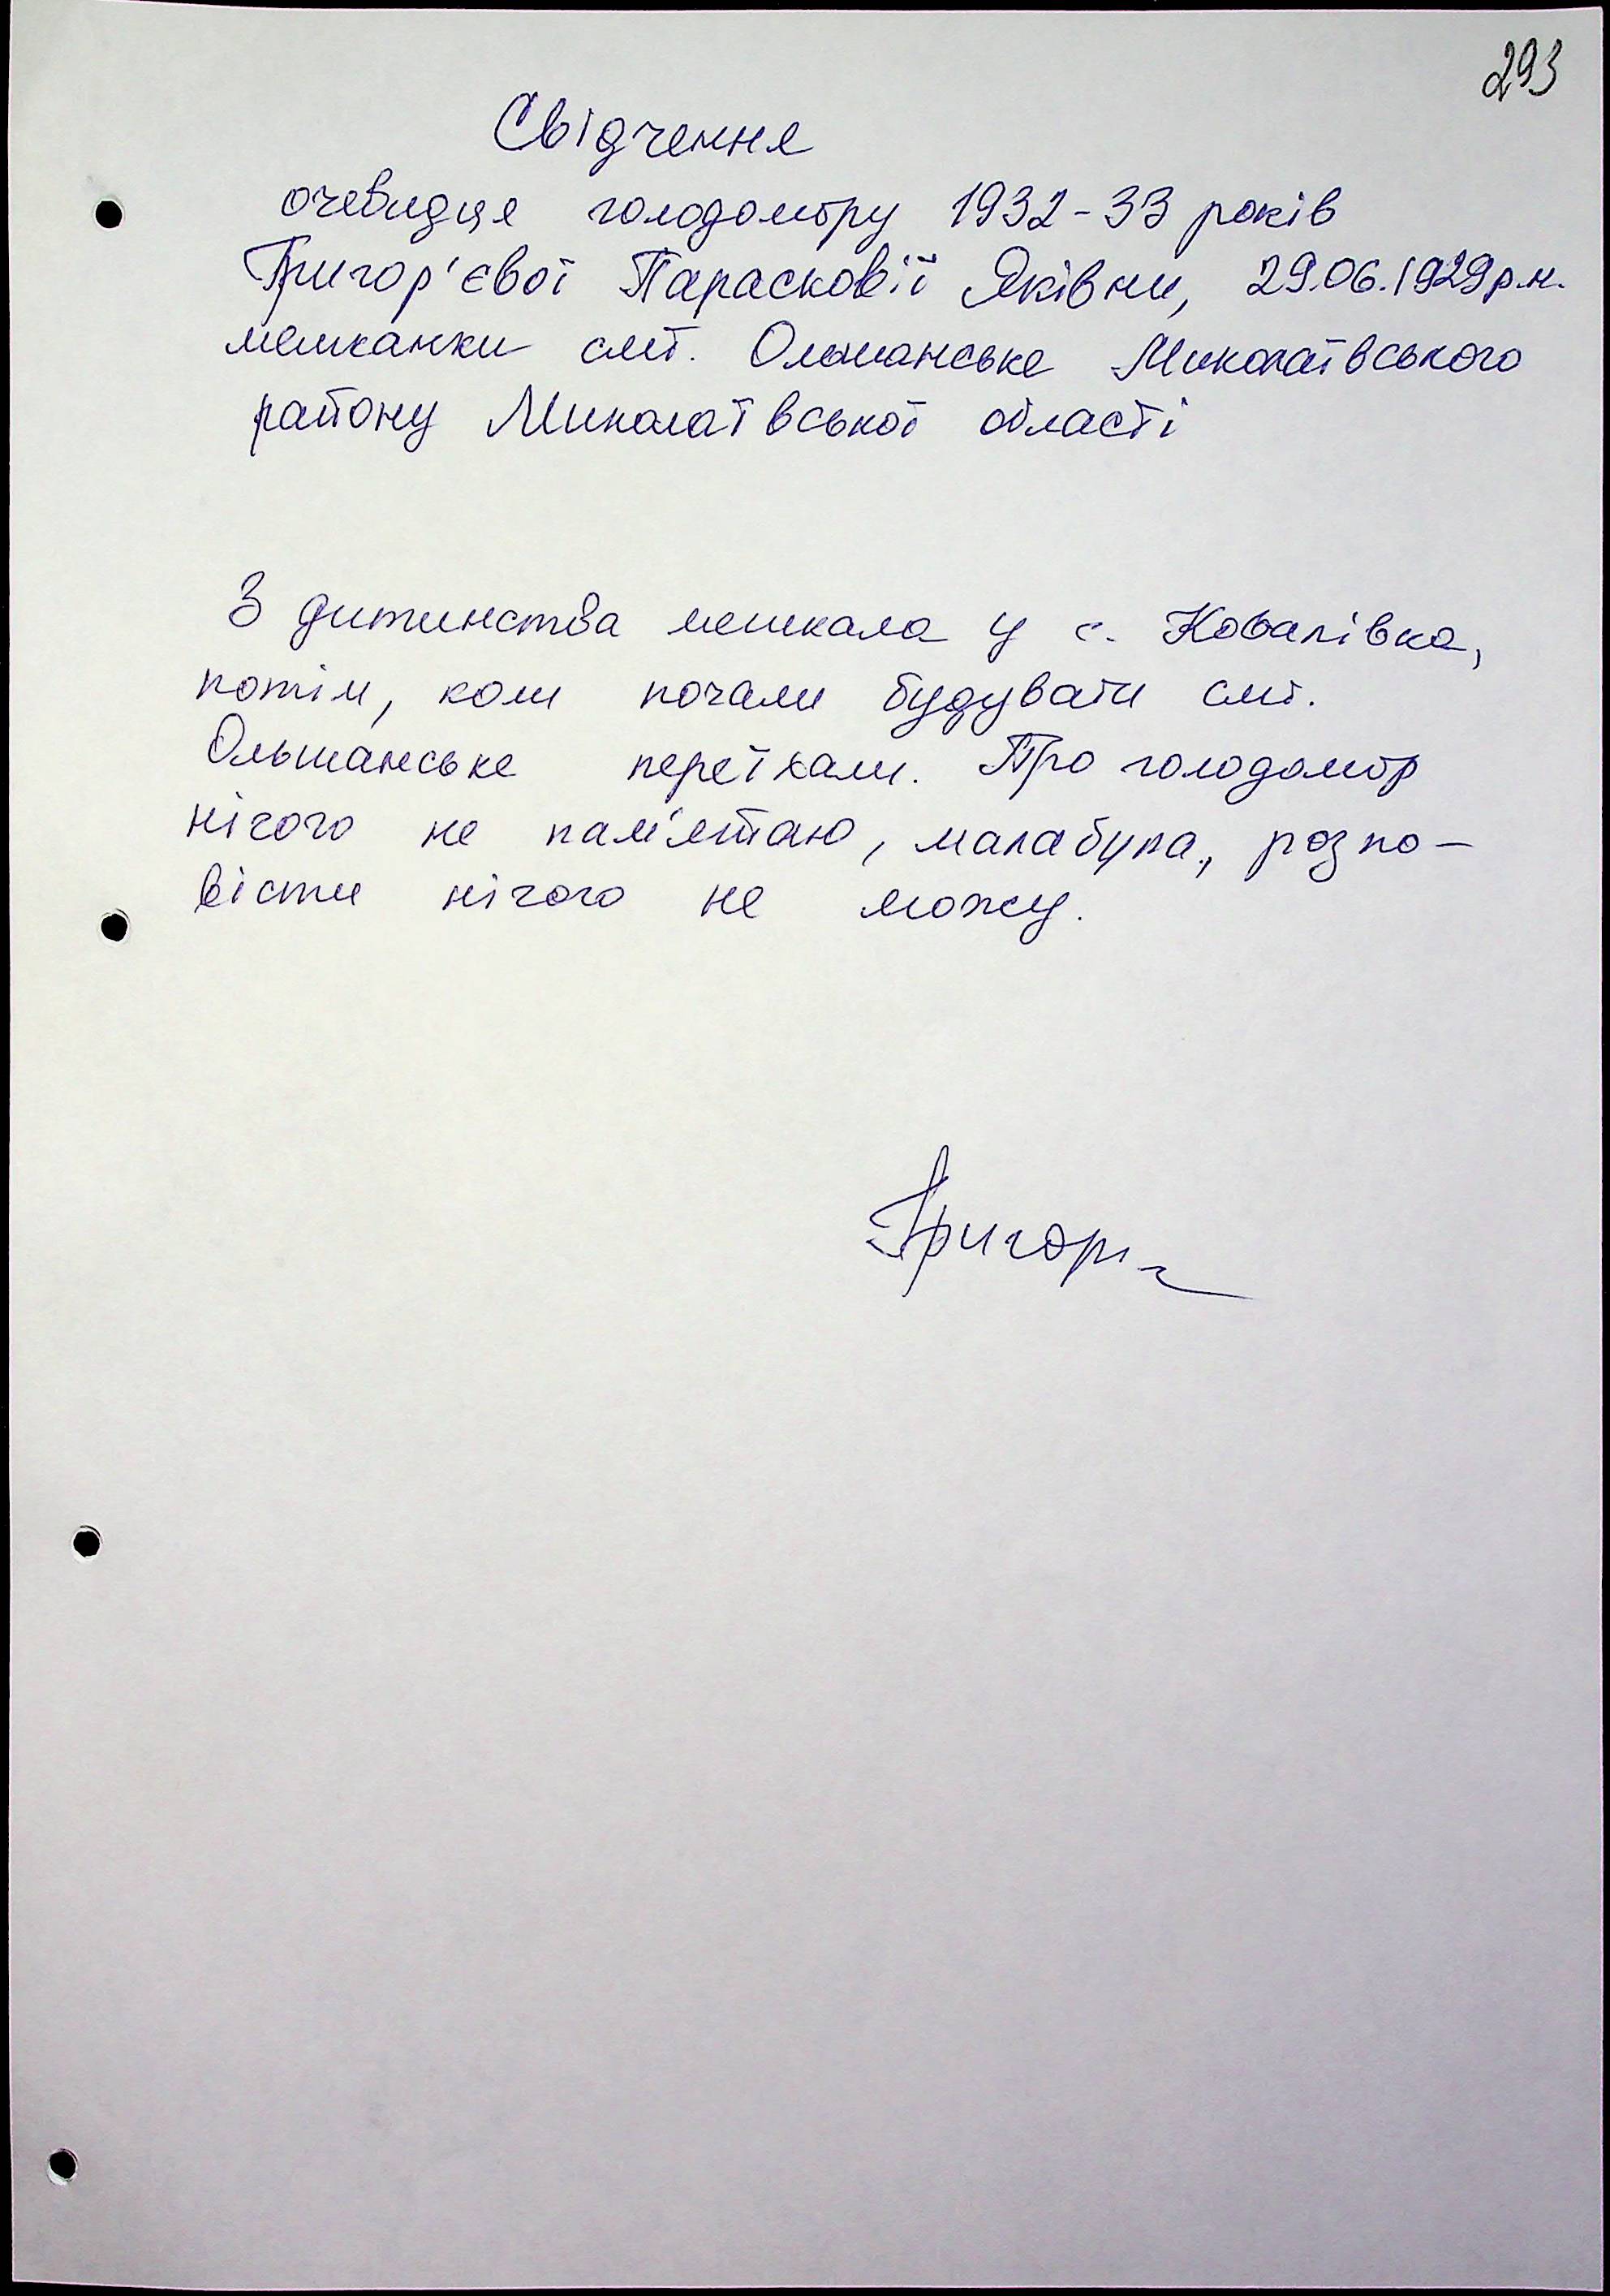 293
Свідчення
очевидця голодомору 1932-33 років
Григор'євої Парасковії Яківни, 29.06.1929р.н.
мешканки смт. Ольшанське Миколаївського
району Миколаївської області
З дитинства мешкала у с. Ковалівка,
потім, коли почали будувати смт.
Ольшанське переїхали. Про голодомор
нічого не пам'ятаю, мала була, розпо-
вісти нічого не можу.